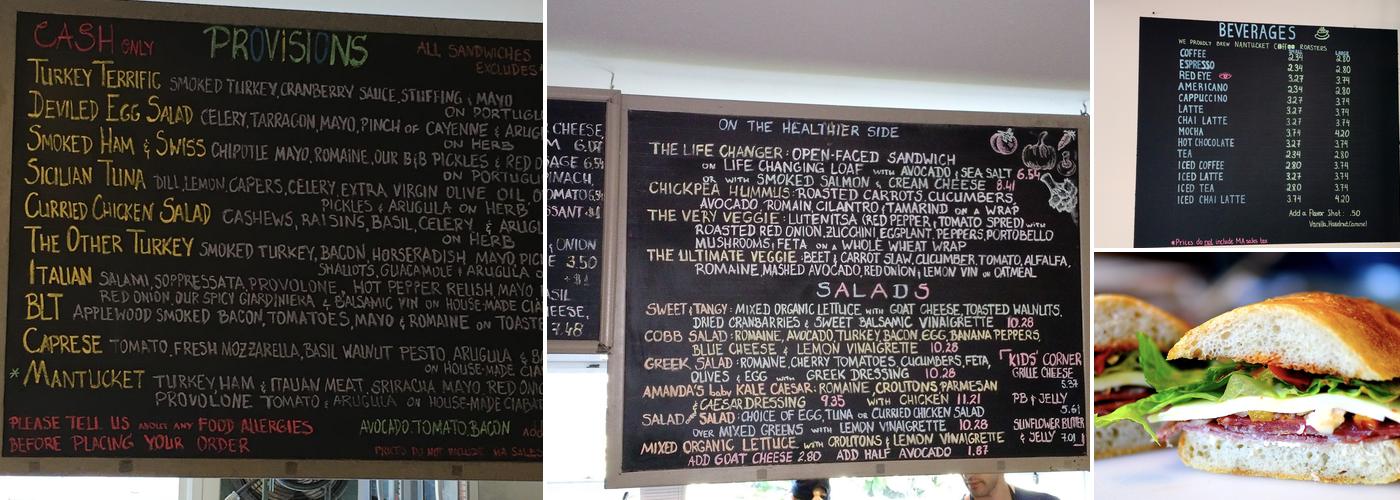 CASH ONLY PROVISIONS ALL SANDWICHES
EXCLUDES
TURKEY TERRIFIC SMOKED TURKEY, CRANBERRY SAUCE, STUFFING & MAYO
ON PORTUGU
DEVILED EGG SALAD CELERY, TARRAGON, MAYO, PINCH OF CAYENNE & ARUG
ON HERB
SMOKED HAM & SWISS CHIPOTLE MAYO, ROMAINE, OUR B&B PICKLES & RED O
ON PORTUGU
SICILIAN TUNA DILL, LEMON, CAPERS, CELERY, EXTRA VIRGIN OLIVE OIL, D
PICKLES & ARUGULA ON HERB
CURRIED CHICKEN SALAD CASHEWS, RAISINS, BASIL, CELERY, & ARUGUL
ON HERB
THE OTHER TURKEY SMOKED TURKEY, BACON, HORSERADISH MAYO, PIC
SHALLOTS, GUACAMOLE & ARUGULA O
ITALIAN SALAMI, SOPPRESSATA, PROVOLONE, HOT PEPPER RELISH, MAYO
RED ONION, OUR SPICY GIARDINIERA & BALSAMIC VIN ON HOUSE-MADE CIA
BLT APPLEWOOD SMOKED BACON, TOMATOES, MAYO & ROMAINE ON TOAST
CAPRESE TOMATO, FRESH MOZZARELLA, BASIL WALNUT PESTO, ARUGULA & B
ON HOUSE-MADE CIA
*MANTUCKET TURKEY, HAM & ITALIAN MEAT, SRIRACHA MAYO, RED ON
PROVOLONE TOMATO & ARUGULA ON HOUSE-MADE CIABAT
PLEASE TELL US ABOUT ANY FOOD ALLERGIES AVOCADO, TOMATO, BACON
BEFORE PLACING YOUR ORDER PRICES DO NOT INCLUDE MA SALES
CHEESE,
M 6.07
SAGE 6.54
PINACH,
OMATO 6.54
SSANT +$1
& ONION
E 3.50
+$1
ASIL
EESE,
7.48
ON THE HEALTHIER SIDE
THE LIFE CHANGER: OPEN-FACED SANDWICH
ON LIFE CHANGING LOAF WITH AVOCADO & SEA SALT 6.54
OR WITH SMOKED SALMON & CREAM CHEESE 8.41
CHICKPEA HUMMUS: ROASTED CARROTS, CUCUMBERS,
AVOCADO, ROMAIN, CILANTRO & TAMARIND ON A WRAP
THE VERY VEGGIE: LUTENITSA (RED PEPPER & TOMATO SPRED) WITH
ROASTED RED ONION, ZUCCHINI, EGGPLANT, PEPPERS, PORTOBELLO
MUSHROOMS & FETA ON A WHOLE WHEAT WRAP
THE ULTIMATE VEGGIE: BEET & CARROT SLAW, CUCUMBER, TOMATO, ALFALFA,
ROMAINE, MASHED AVOCADO, RED ONION & LEMON VIN ON OATMEAL
SALADS
SWEET & TANGY: MIXED ORGANIC LETTUCE WITH GOAT CHEESE, TOASTED WALNUTS,
DRIED CRANBARRIES & SWEET BALSAMIC VINAIGRETTE 10.28
COBB SALAD: ROMAINE, AVOCADO, TURKEY, BACON, EGG, BANANA PEPPERS,
BLUE CHEESE & LEMON VINAIGRETTE 10.28
GREEK SALAD: ROMAINE, CHERRY TOMATOES, CUCUMBERS, FETA,
OLIVES & EGG WITH GREEK DRESSING 10.28
AMANDA'S baby KALE CAESAR: ROMAINE, CROUTONS PARMESAN
& CAESAR DRESSING 9.35 WITH CHICKEN 11.21
SALAD ON SALAD: CHOICE OF EGG, TUNA OR CURRIED CHICKEN SALAD
OVER MIXED GREENS WITH LEMON VINAIGRETTE 10.28
MIXED ORGANIC LETTUCE WITH CROUTONS & LEMON VINAIGRETTE
ADD GOAT CHEESE 2.80 ADD HALF AVOCADO 1.87
KIDS' CORNER
GRILLE CHEESE
5.37
PB & JELLY
5.61
SUNFLOWER BUTTER
& JELLY 7.01
BEVERAGES
WE PROUDLY BREW NANTUCKET COFFEE ROASTERS
SMALL LARGE
COFFEE 2.34 2.80
ESPRESSO 2.34 2.80
RED EYE 3.27 3.74
AMERICANO 2.34 2.80
CAPPUCCINO 3.27 3.74
LATTE 3.27 3.74
CHAI LATTE 3.27 3.74
MOCHA 3.74 4.20
HOT CHOCOLATE 3.27 3.74
TEA 2.34 2.80
ICED COFFEE 2.80 3.74
ICED LATTE 3.27 3.74
ICED TEA 2.80 3.74
ICED CHAI LATTE 3.74 4.20
Add a Flavor Shot: .50
Vanilla, Hazelnut, Caramel
*Prices do not include MA sales tax